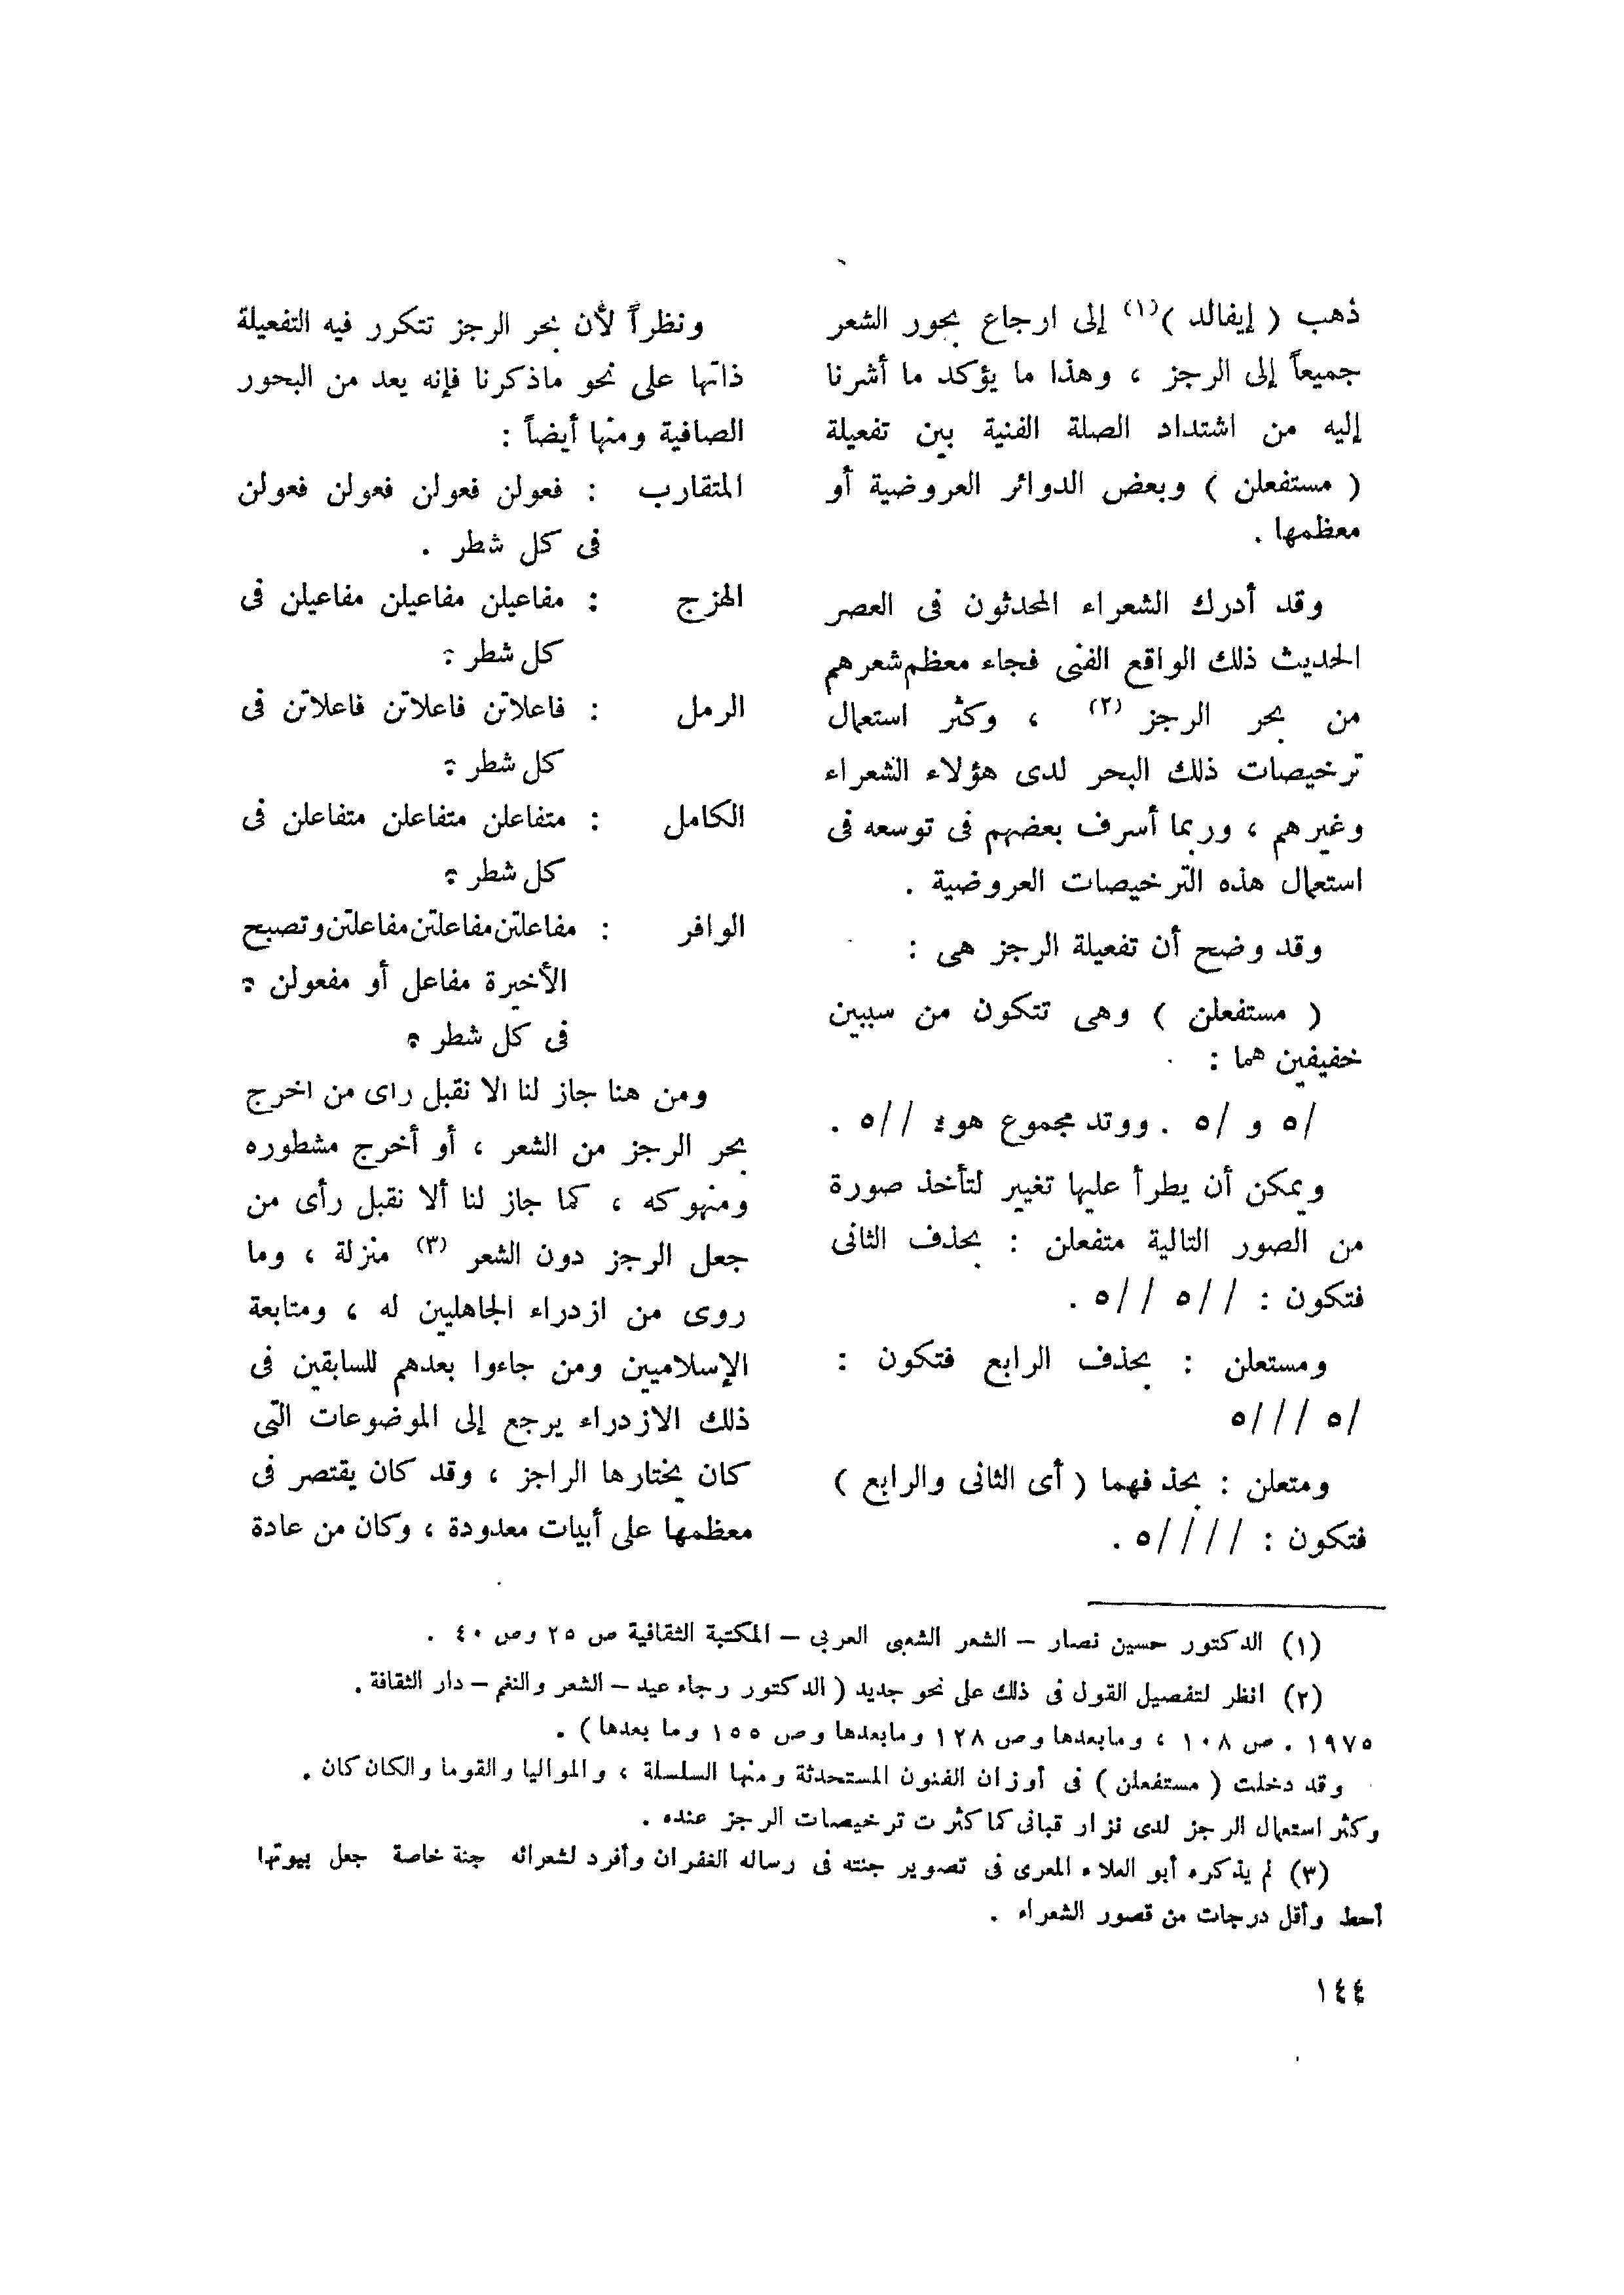 ذهب ( إيفالد )(١) إلى ارجاع بحور الشعر
جميعاً إلى الرجز ، وهذا ما يؤكد ما أشرنا
إليه من اشتداد الصلة الفنية بين تفعيلة
( مستفعلن ) وبعض الدوائر العروضية أو
معظمها .
وقد أدرك الشعراء المحدثون فى العصر
الحديث ذلك الواقع الفنى فجاء معظم شعرهم
من بحر الرجز (٢) ، وكثر استعمال
ترخيصات ذلك البحر لدى هؤلاء الشعراء
وغيرهم ، وربما أسرف بعضهم فى توسعه فى
استعمال هذه الترخيصات العروضية .
وقد وضح أن تفعيلة الرجز هى :
( مستفعلن ) وهى تتكون من سببين
خفيفين هما :
/٥ و /٥ . ووتد مجموع هو : //٥ .
ويمكن أن يطرأ عليها تغيير لتأخذ صورة
من الصور التالية متفعلن : بحذف الثانى
فتكون : //٥ //٥ .
ومستعلن : بحذف الرابع فتكون :
/٥ ///٥
ومتعلن : بحذفهما ( أى الثانى والرابع )
فتكون : ////٥ .
ونظراً لأن بحر الرجز تتكرر فيه التفعيلة
ذاتها على نحو ماذكرنا فإنه يعد من البحور
الصافية ومنها أيضاً :
المتقارب : فعولن فعولن فعولن فعولن
فى كل شطر .
الهزج : مفاعيلن مفاعيلن مفاعيلن فى
كل شطر :
الرمل : فاعلاتن فاعلاتن فاعلاتن فى
كل شطر :
الكامل : متفاعلن متفاعلن متفاعلن فى
كل شطر .
الوافر : مفاعلتن مفاعلتن مفاعلتن وتصبح
الأخيرة مفاعل أو مفعولن .
فى كل شطر .
ومن هنا جاز لنا الا نقبل راى من اخرج
بحر الرجز من الشعر ، أو أخرج مشطوره
ومنهوكه ، كما جاز لنا ألا نقبل رأى من
جعل الرجز دون الشعر (٣) منزلة ، وما
روى من ازدراء الجاهليين له ، ومتابعة
الإسلاميين ومن جاءوا بعدهم للسابقين فى
ذلك الازدراء يرجع إلى الموضوعات التى
كان يختارها الراجز ، وقد كان يقتصر فى
معظمها على أبيات معدودة ، وكان من عادة
(١) الدكتور حسين نصار – الشعر الشعبى العربي – المكتبة الثقافية ص ٢٥ وص ٤٠ .
(٢) انظر لتفصيل القول فى ذلك على نحو جديد ( الدكتور رجاء عيد – الشعر والنغم – دار الثقافة .
١٩٧٥ . ص ١٠٨ ، ومابعدها وص ١٢٨ ومابعدها وص ١٥٥ وما بعدها ) .
وقد دخلت ( مستفعلن ) فى أوزان الفنون المستحدثة ومنها السلسلة ، والمواليا والقوما والكان كان .
وكثر استعمال الرجز لدى نزار قبانى كما كثرت ترخيصات الرجز عنده .
(٣) لم يذكره أبو العلاء المعرى فى تصوير جنته فى رساله الغفران وأفرد لشعرائه جنة خاصة جعل بيوتها
أحط وأقل درجات من قصور الشعراء .
١٤٤